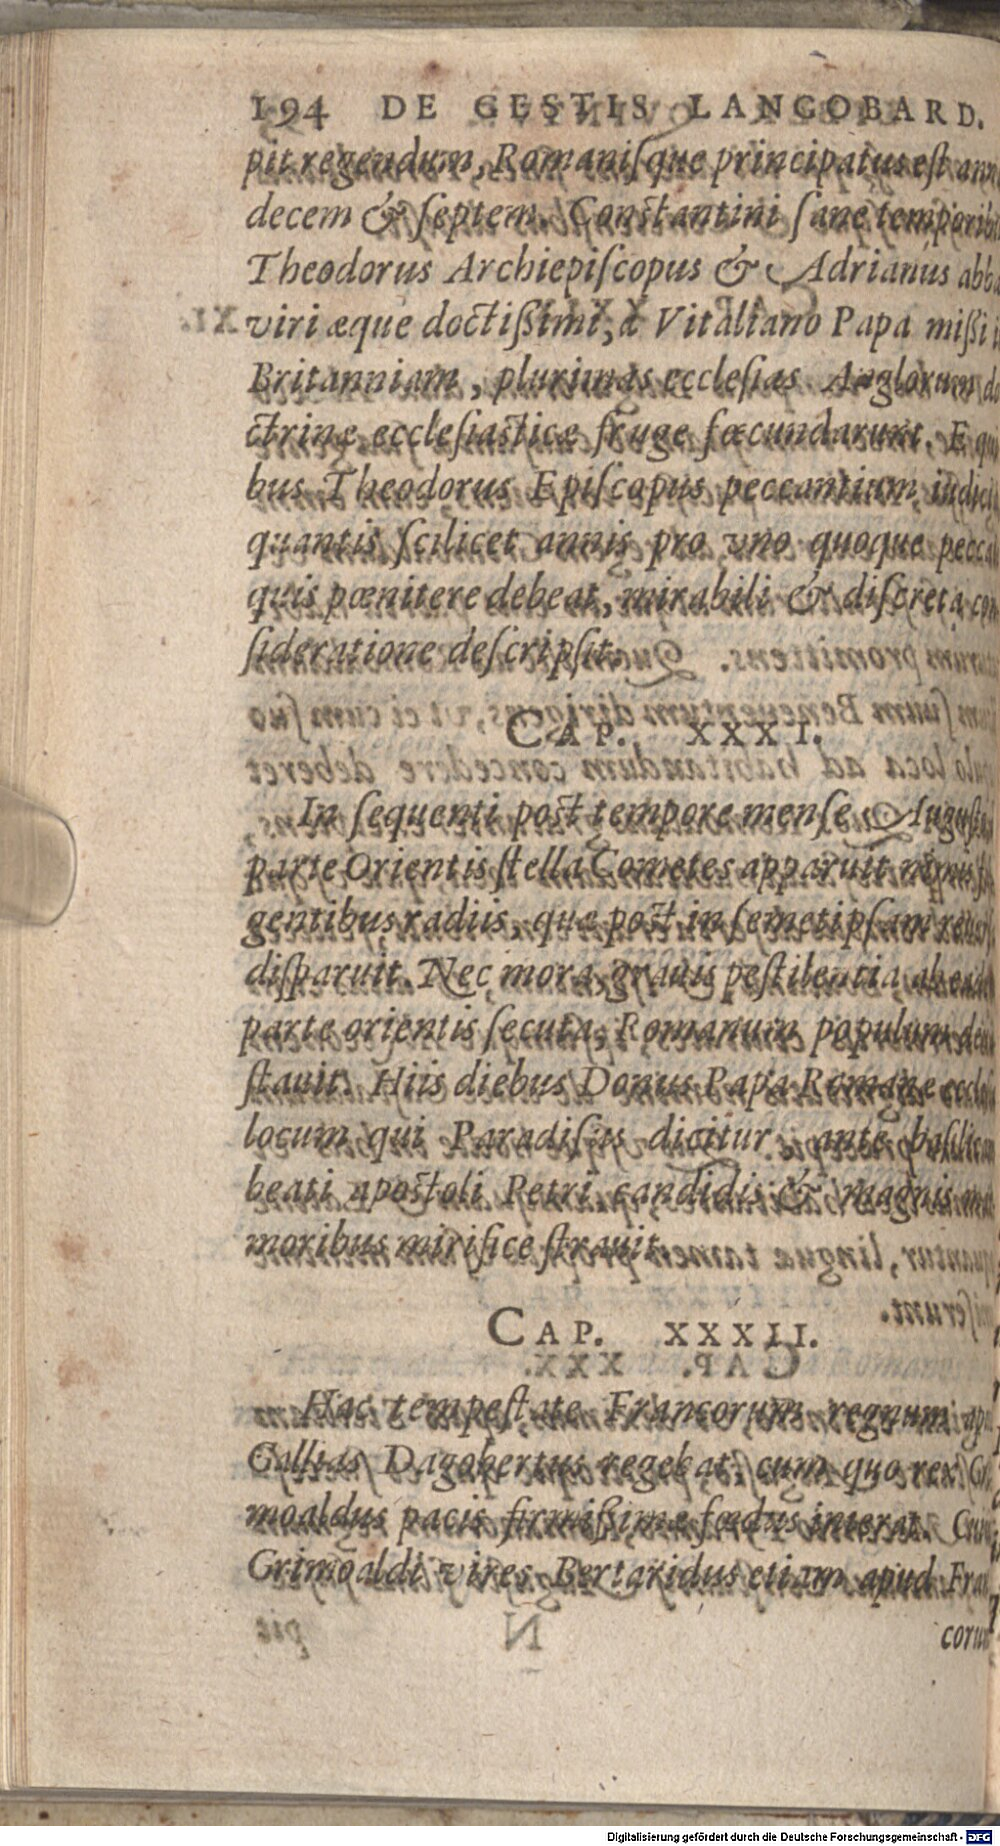 194 DE GESTIS LANGOBARD.
pit regendum, Romanisque principatus est ann
decem & septem. Constantini sane temporib
Theodorus Archiepiscopus & Adrianus abba
viri æque doctißimi, à Vitaliano Papa mißi i
Britanniam, plurimas ecclesias Anglorum do
ctrinę ecclesiasticę fruge fœcundarunt. E qui
bus Theodorus Episcopus peccantium iudici
quantis scilicet annis pro vno quoque pecca
quis pœnitere debeat, mirabili & discreta con
sideratione descripsit.
CAP. XXXI.
In sequenti post tempore mense Augusto
parte Orientis stella Cometes apparuit nimis
gentibus radiis, quę post in semetipsam
disparuit. Nec mora, grauis pestilentia ab eadem
parte orientis secuta, Romanum populum deua
stauit. Hiis diebus Donus Papa Romanę eccle
locum qui Paradisus dicitur ante basilicam
beati apostoli Petri, candidis & magnis mar
moribus mirifice strauit.
CAP. XXXII.
Hac tempestate Francorum regnum apu
Gallias Dagobertus regebat, cum quo rex Gri
moaldus pacis firmißime fœdus inierat. Cuius
Grimoaldi vires Bertaridus etiam apud Fran
corum
Digitalisierung gefördert durch die Deutsche Forschungsgemeinschaft - DFG